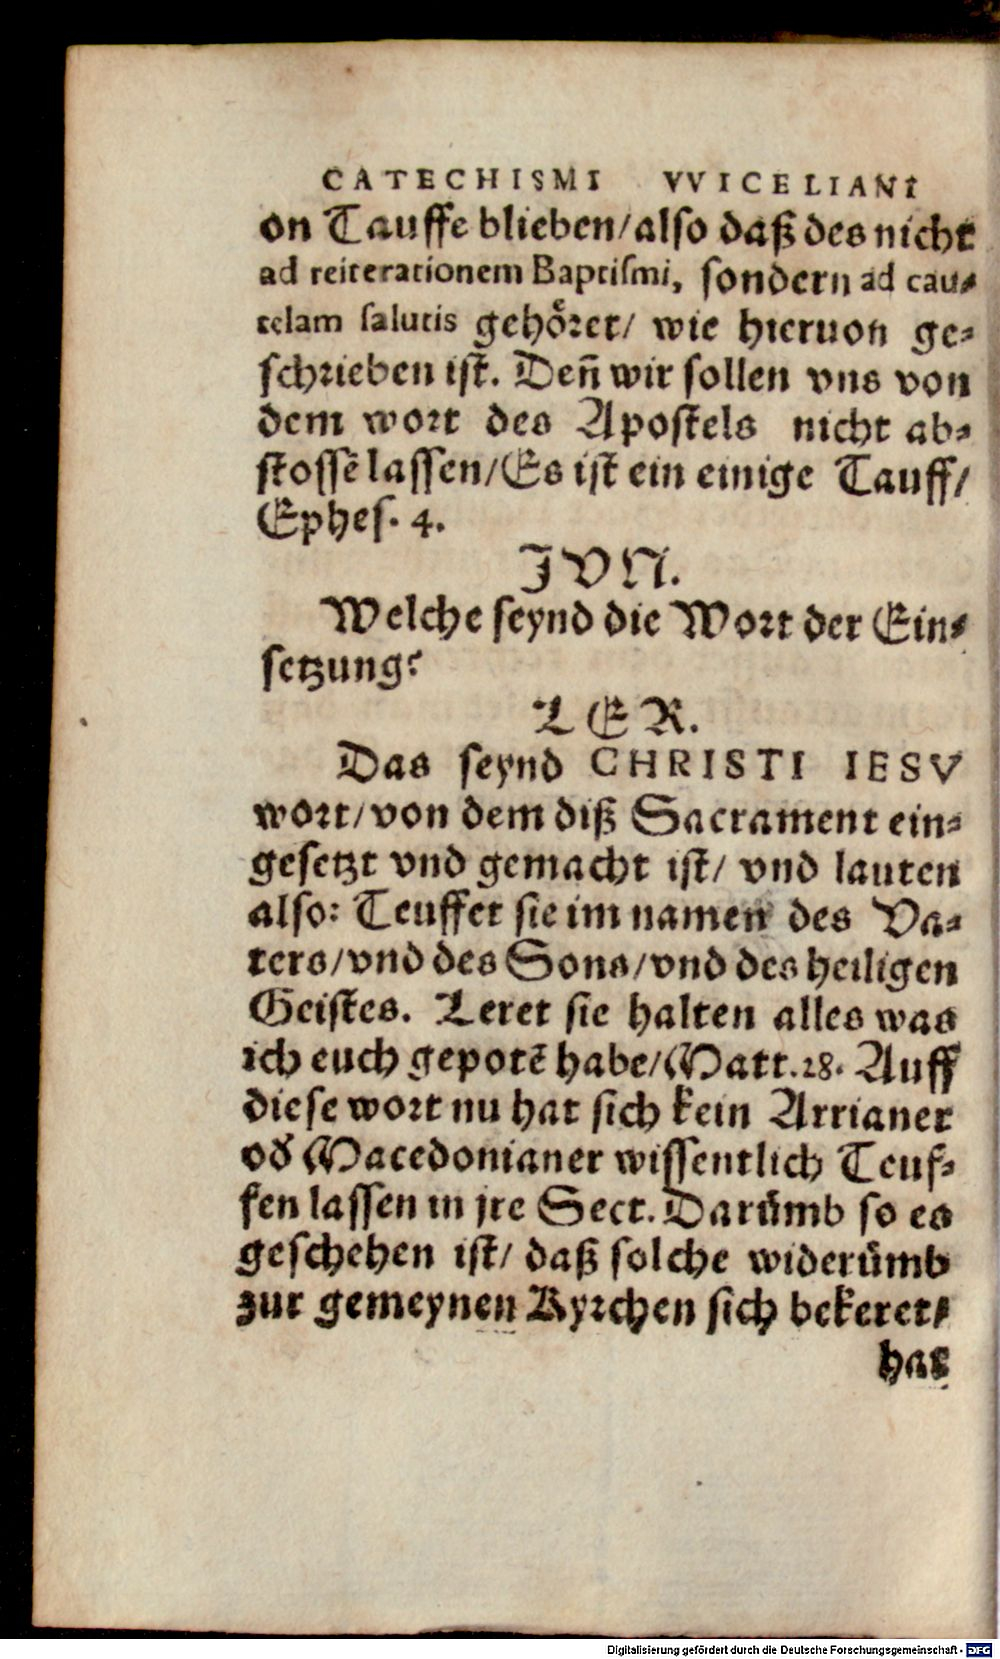 CATECHISMI VVICELIANI
on Tauffe blieben/also daß des nicht
ad reiterationem Baptiſmi, ſondern ad cau⸗
telam ſalutis gehoͤꝛet/ wie hieruon ge⸗
ſchꝛieben iſt. Deñ wir ſollen vns von
dem woꝛt des Apoſtels nicht ab⸗
ſtoſſẽ laſſen/Es iſt ein einige Tauff/
Epheſ. 4.
JVN.
Welche ſeynd die Woꝛt der Ein⸗
ſetzung?
LER.
Das ſeynd CHRISTI IESV
woꝛt/von dem diß Sacrament ein⸗
geſetzt vnd gemacht iſt/ vnd lauten
alſo: Teuffet ſie im namen des Va⸗
ters/vnd des Sons/vnd des heiligen
Geiſtes. Leret ſie halten alles was
ich euch gepotẽ habe/Matt.28. Auff
dieſe woꝛt nu hat ſich kein Arrianer
od̕ Macedonianer wiſſentlich Teuf⸗
fen laſſen in jre Sect. Daruͤmb ſo es
geſchehen iſt/ daß ſolche wideruͤmb
zur gemeynen Kyꝛchen ſich bekeret/
hat
Digitalisierung gefördert durch die Deutsche Forschungsgemeinschaft - DFG